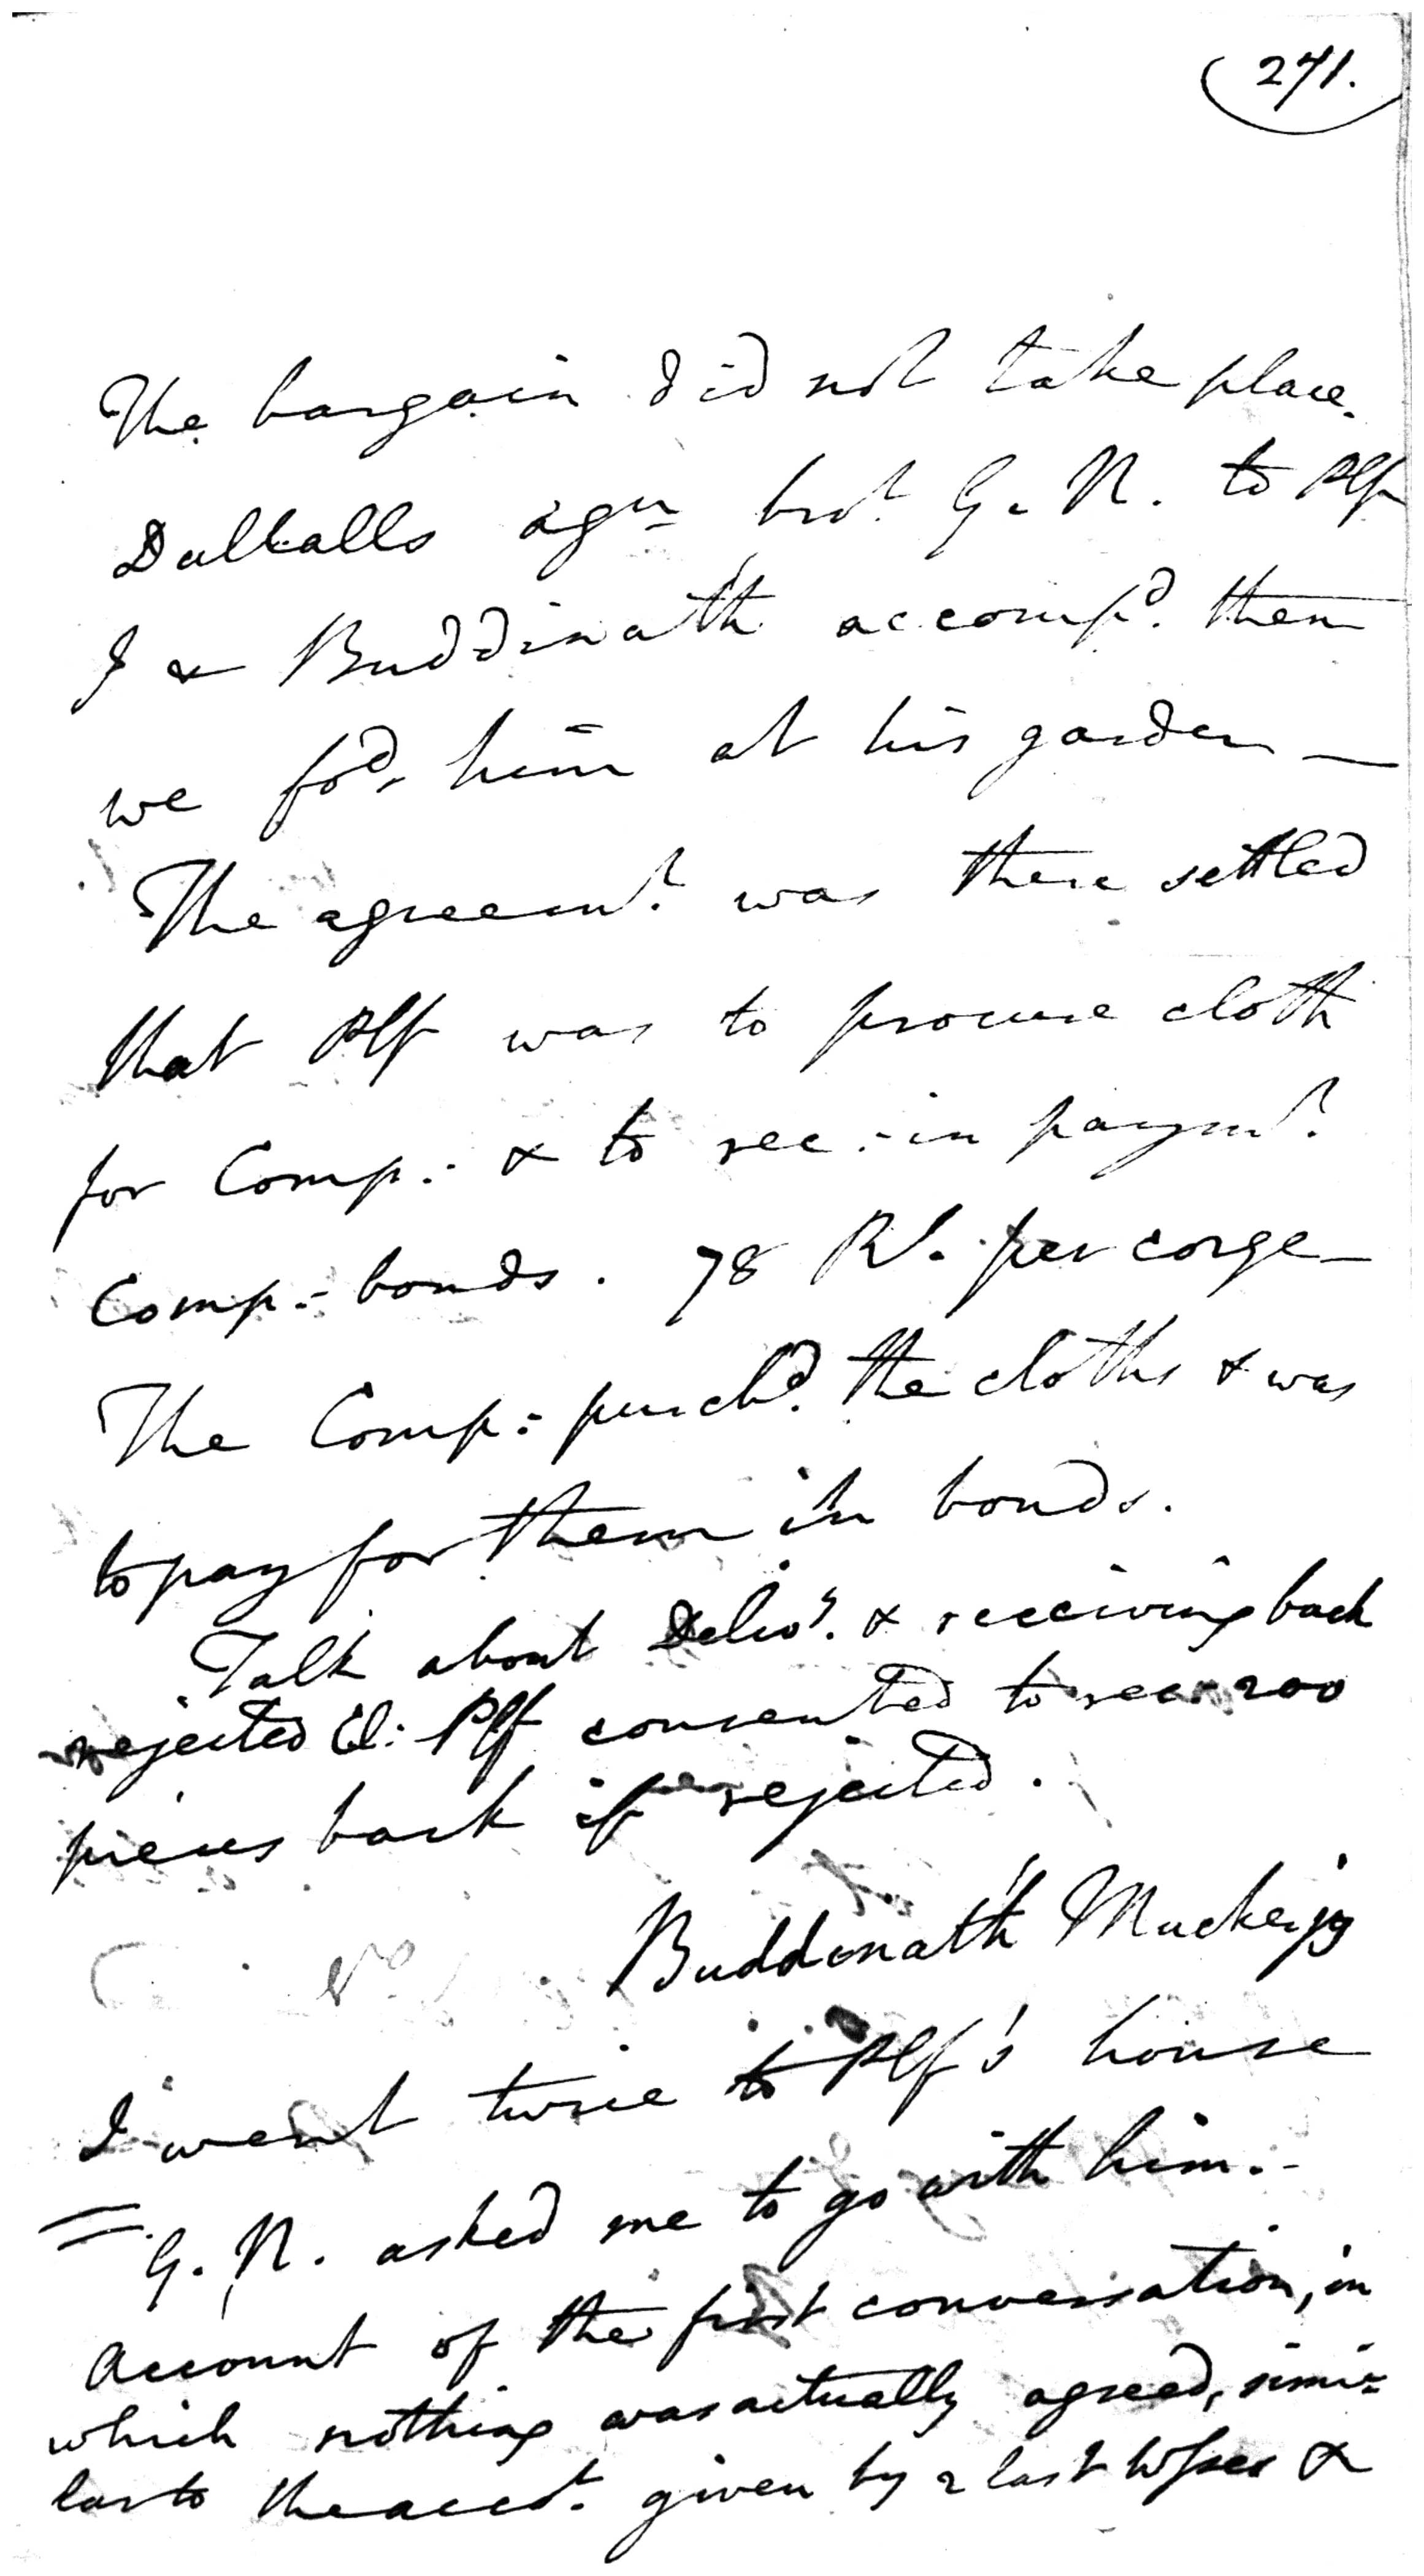 271.
The bargain did not take place.
Dullalls agn brot G. N. to Plf
I & Buddinath accompd. them
we fod. him at his garden —
The agreemt. was there settled
that Plf was to procure cloth
for Comp:. & to rec:. in paymt.
Comp:. bonds. 78 Rs. per corge —
The Comp:. purchd. the cloths & was
to pay for them in bonds.
Talk about Delivy. & receiving back
rejected Cl: Plf consented to rec:. 200
pieces back if rejected.
Buddinath Muckerjy
I went twice to Plf's house
= G. N. asked me to go with him. -
Account of the first conversation, in
which nothing was actually agreed, simi=
lar to the acct. given by 2 last Wsses &